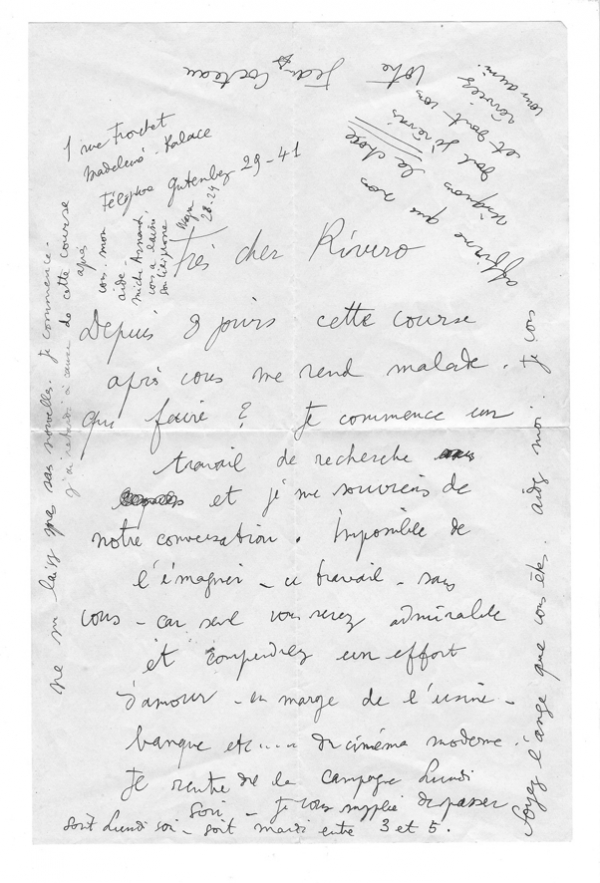 1 rue Frochet
Madeleine-Palace
Téléphone Gutenberg 29-41
28-29
Très cher Rivero
Depuis 8 jours cette course
après vous me rend malade.
Que faire ? Je commence un
travail de recherche
et je me souviens de
notre conversation. Impossible de
l'imaginer - ce travail - sans
vous - car seul vous serez admirable
et comprendrez un effort
d'amour - en marge de l'usine -
banque etc..... du cinéma moderne.
Je rentre de la campagne Lundi
soir - Je vous supplie de passer
soit Lundi soir - soit mardi entre 3 et 5.
Soyez l'ange que vous êtes. aidez moi. Je vous
affirme que nous
la chose
dont je rêvais
et dont vous
rêviez
vous aussi.
Votre
Jean Cocteau
ne me laissez pas sans nouvelles. Je commence.
j'ai retardé à cause de cette course
après
vous. mon
aide-
vous a laissé
son téléphone